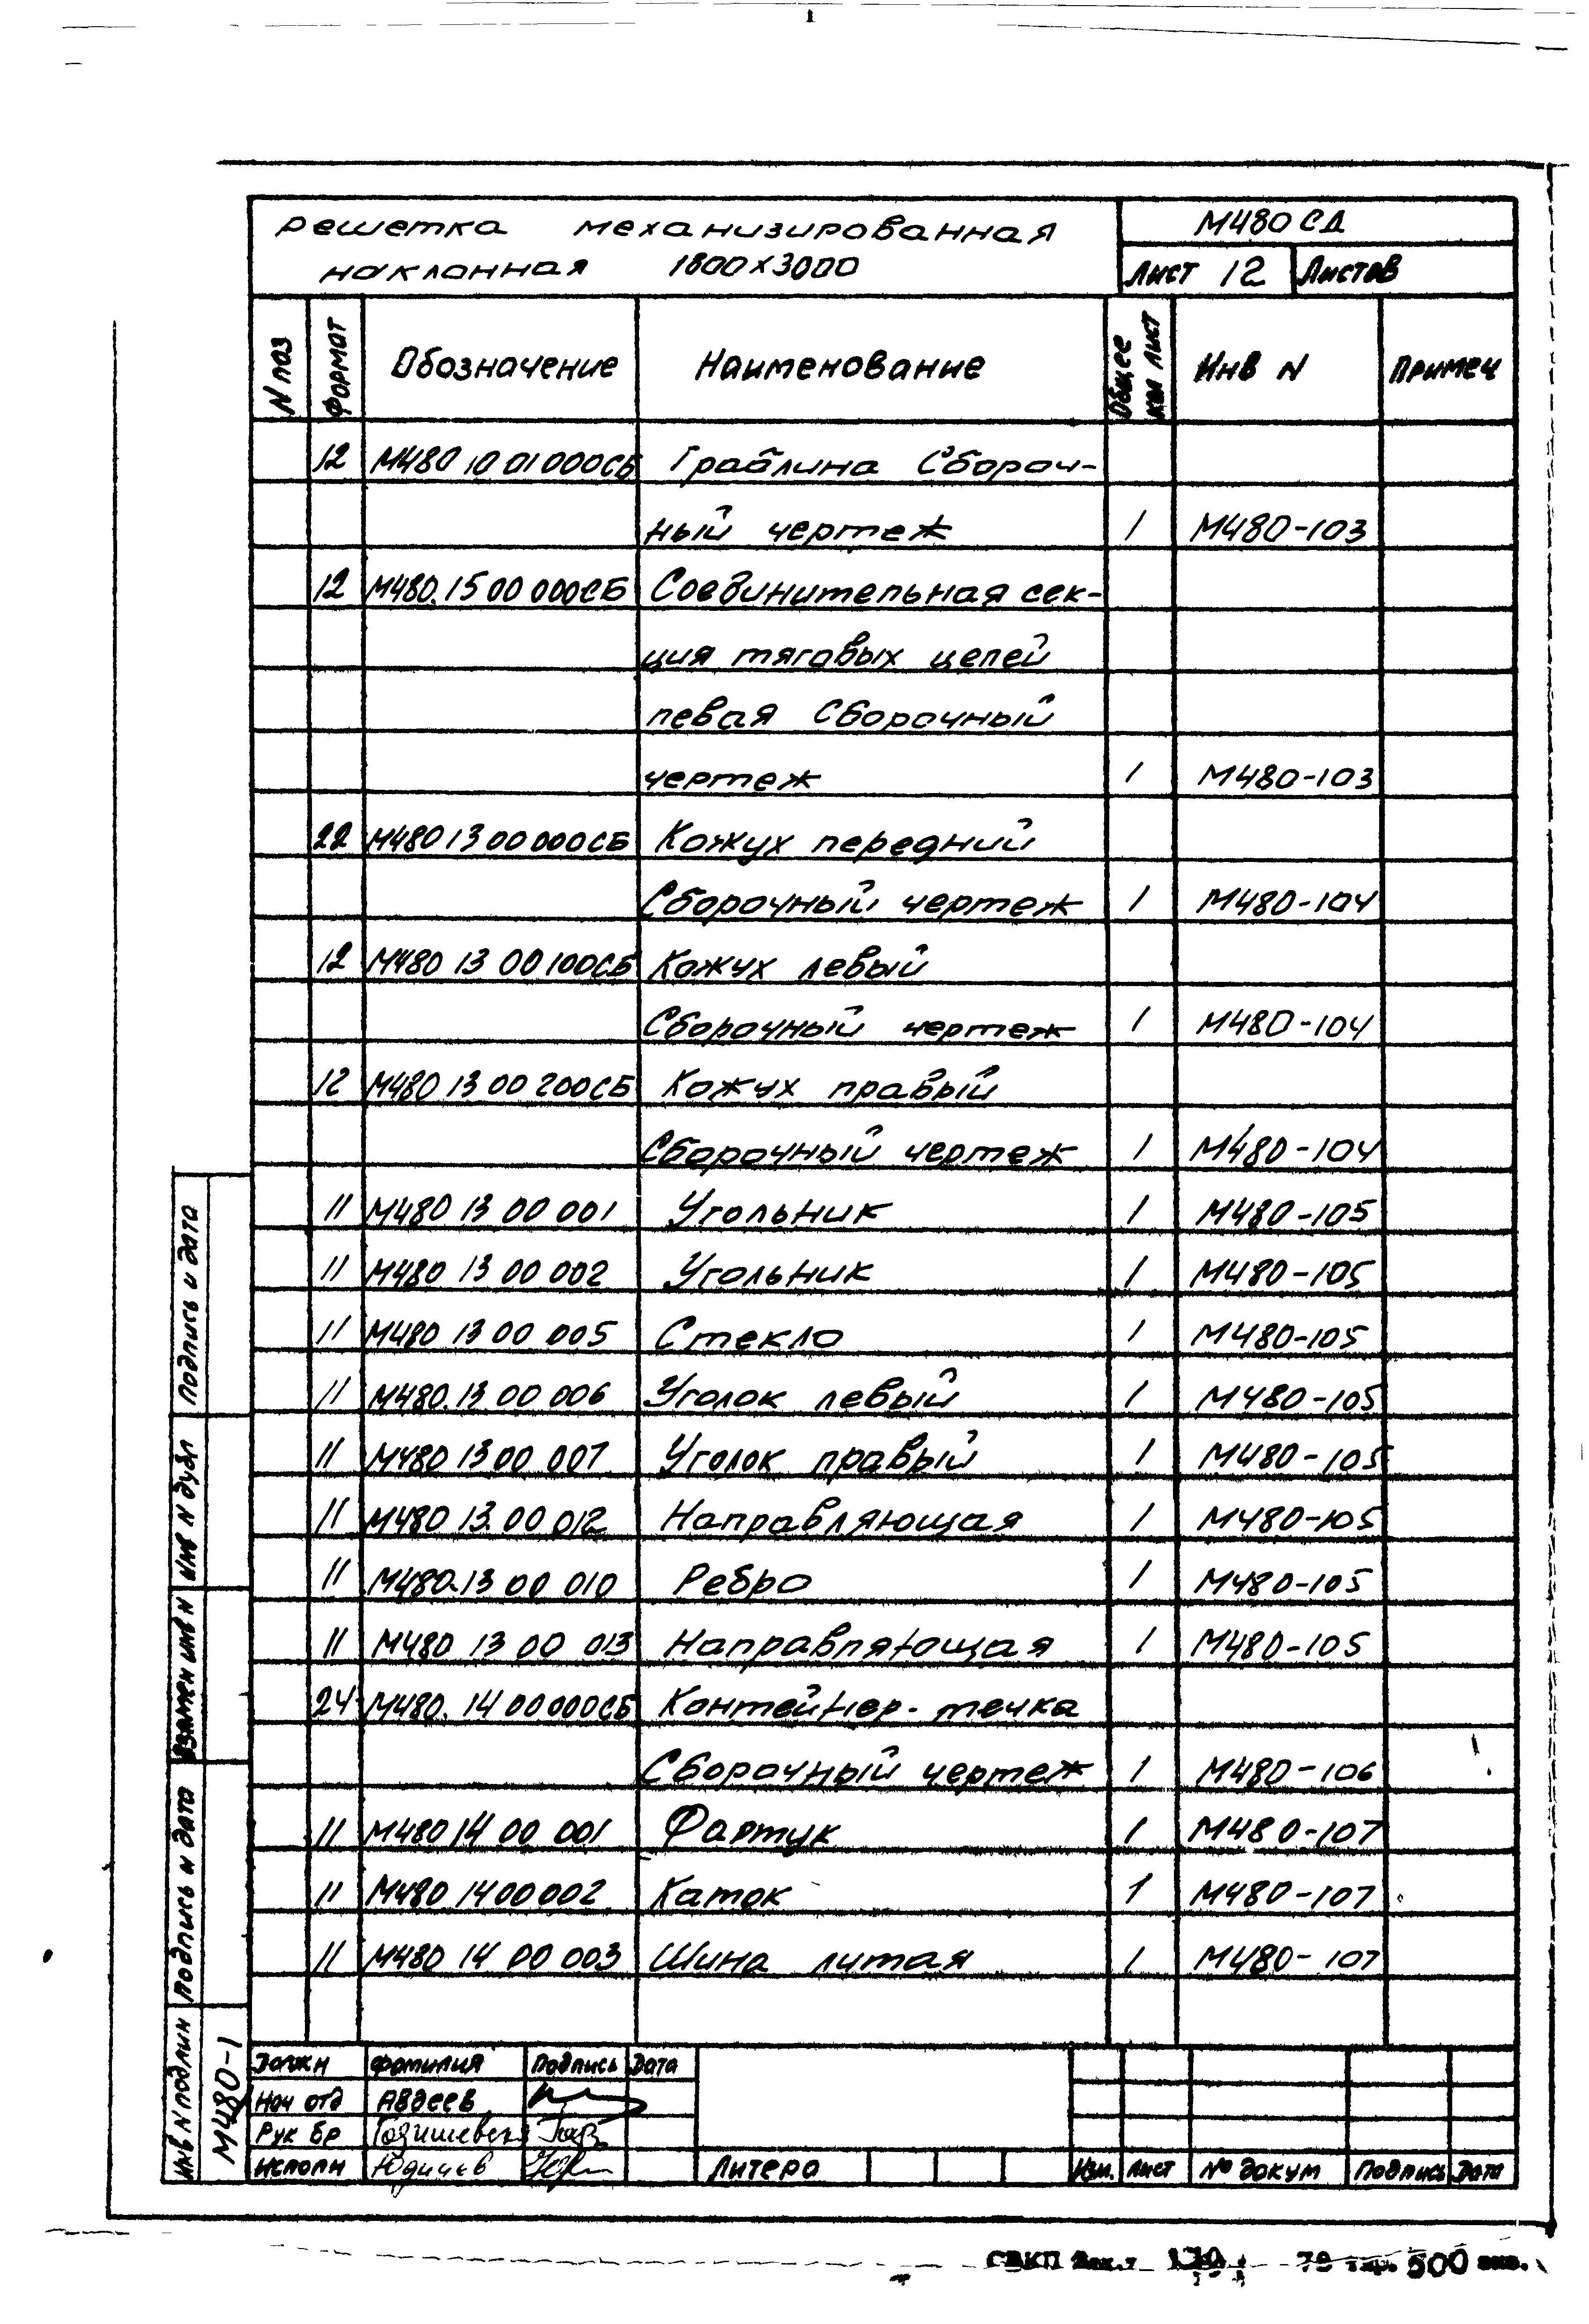 Решетка механизированная М480 СД
наклонная 1800х3000 Лист 12 Листов
N поз Формат Обозначение Наименование Общее кол лист Инв N Примеч
12 М480 10 01 000СБ Граблина Сбороч-
ный чертеж 1 М480-103
12 М480.15 00 000СБ Соединительная сек-
ция тяговых цепей
левая Сборочный
чертеж 1 М480-103
22 М480 13 00 000СБ Кожух передний
Сборочный чертеж 1 М480-104
12 М480 13 00 100СБ Кожух левый
Сборочный чертеж 1 М480-104
12 М480 13 00 200СБ Кожух правый
Сборочный чертеж 1 М480-104
11 М480 13 00 001 Угольник 1 М480-105
11 М480 13 00 002 Угольник 1 М480-105
11 М480 13 00 005 Стекло 1 М480-105
11 М480.13 00 006 Уголок левый 1 М480-105
11 М480 13 00 007 Уголок правый 1 М480-105
11 М480 13.00 012 Направляющая 1 М480-105
11 М480.13 00 010 Ребро 1 М480-105
11 М480 13 00 013 Направляющая 1 М480-105
24 М480. 14 00 000СБ Контейнер-течка
Сборочный чертеж 1 М480-106
11 М480 14 00 001 Фартук 1 М480-107
11 М480 14 00 002 Каток 1 М480-107
11 М480 14 00 003 Шина литая 1 М480-107
Должн Фамилия Подпись Дата
Нач отд Авдеев
Рук бр
Исполн Юдичев Литера Изм. Лист № докум Подпись Дата
Подпись и дата
Инв N дубл
Взамен инв N
Подпись и дата
Инв N подлин
М480-1
500